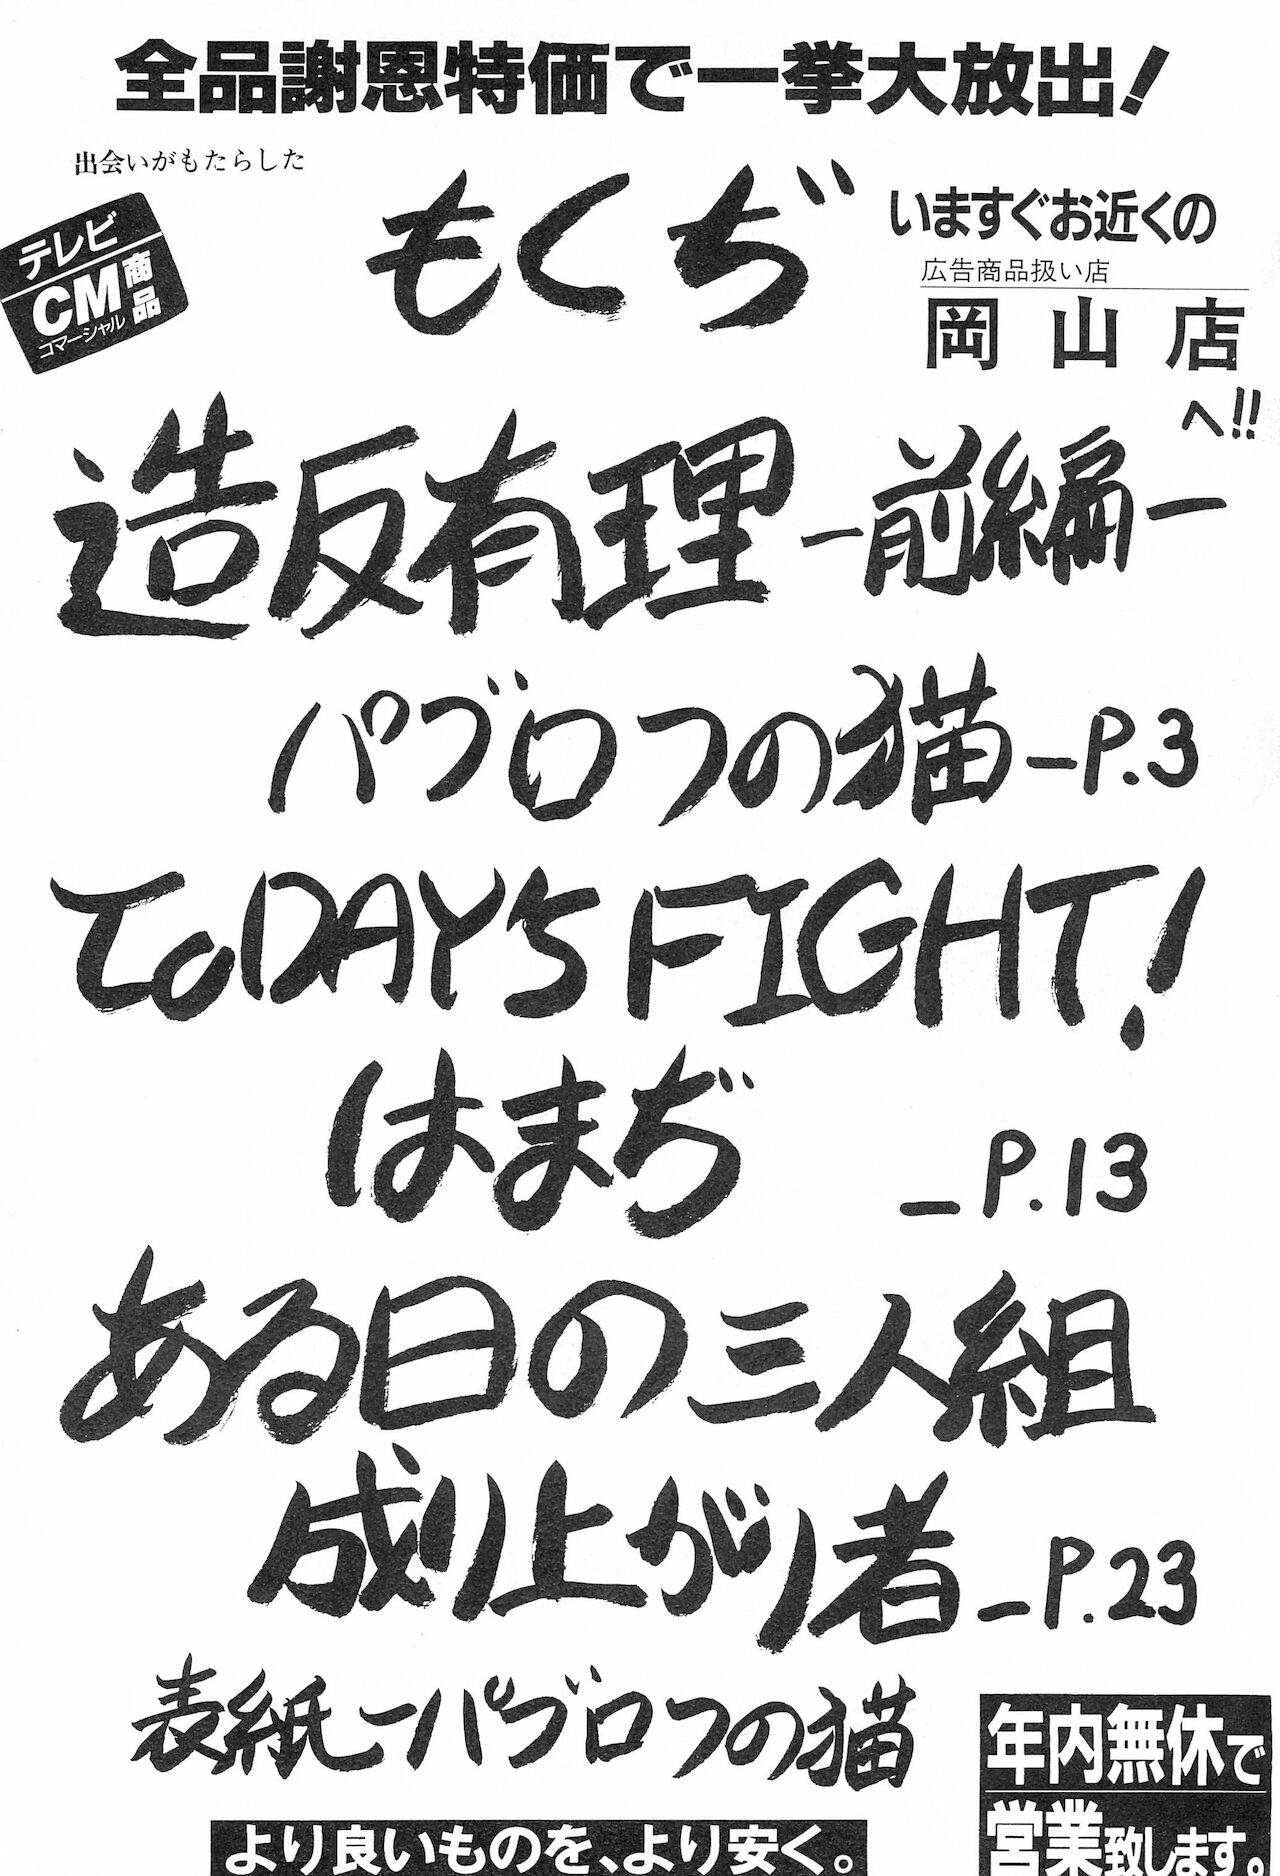 全品謝恩特価で一挙大放出!
出会いがもたらした
テレビ
CM商品
コマーシャル
もくぢ
いますぐお近くの
広告商品扱い店
岡山店
へ!!
造反有理 ー前編ー
パブロフの猫 ーP.3
ToDAY'S FIGHT!
はまぢ ーP.13
ある日の三人組
成り上がり者 ーP.23
表紙ーパブロフの猫
より良いものを、より安く。
年内無休で
営業致します。